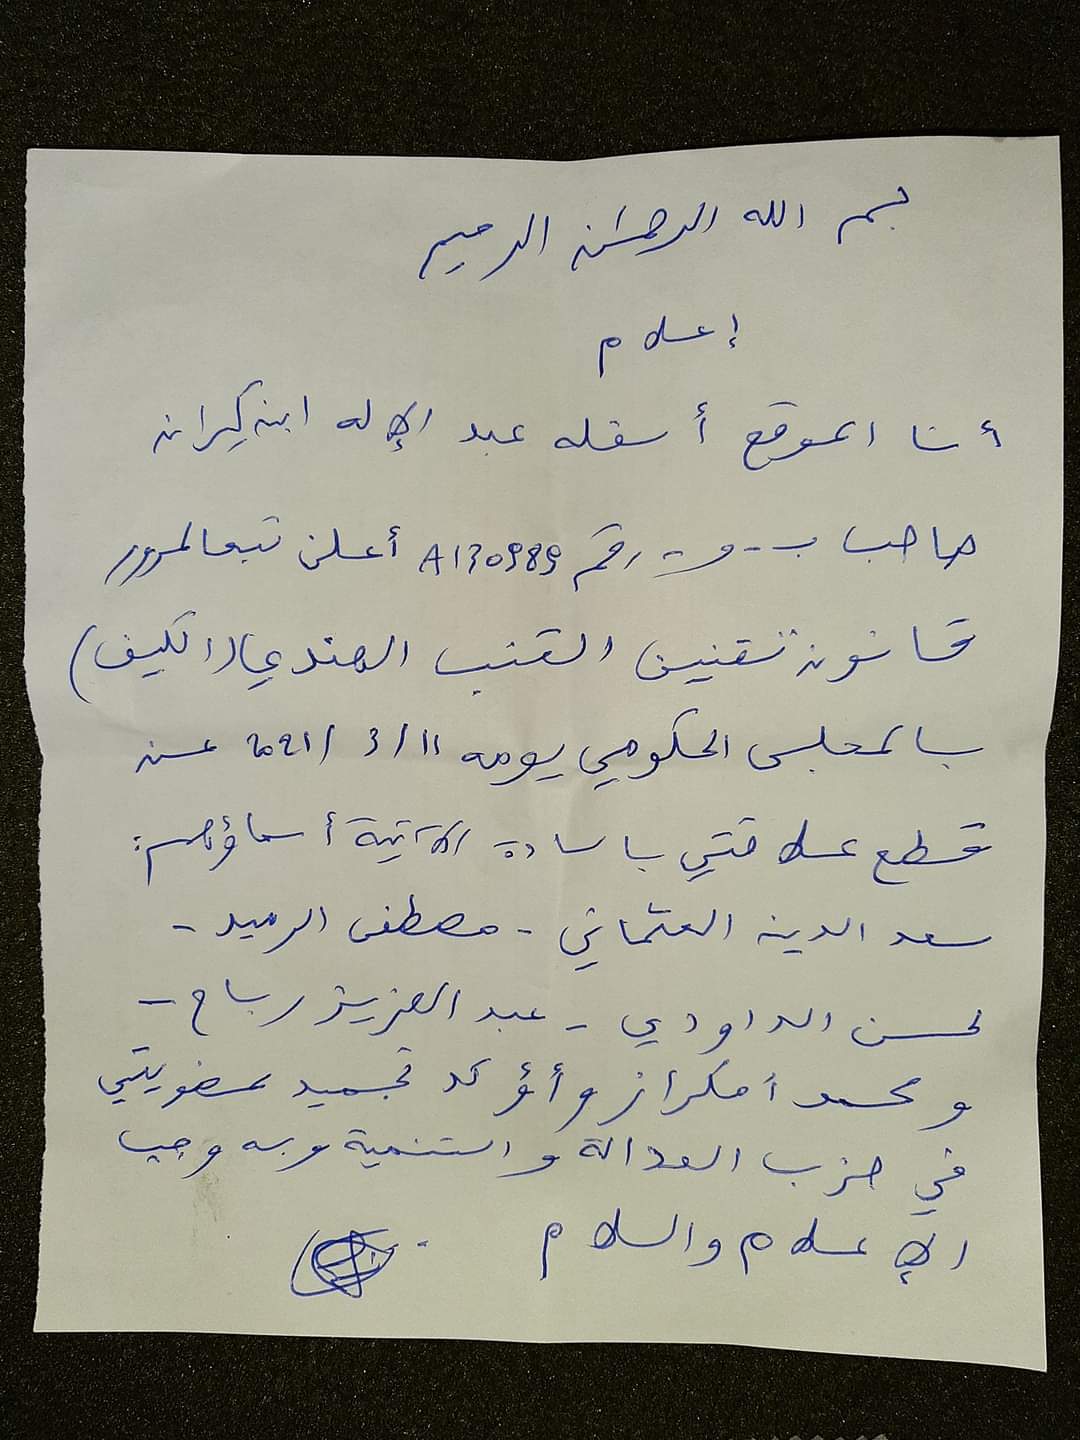 بسم الله الرحمن الرحيم
إعلام
أنا الموقع أسفله عبد الإله ابن كيران
صاحب ب-و- رقم A130989 أعلن تبعا لمرور
قانون تقنين القنب الهندي (الكيف)
بالمجلس الحكومي يومه 11/3/2021 عن
قطع علاقتي بالسادة الآتية أسماؤهم:
سعد الدين العثماني - مصطفى الرميد -
لحسن الداودي - عبد العزيز رباح -
ومحمد أمكراز وأؤكد تجميد عضويتي
في حزب العدالة والتنمية وبه وجب
الإعلام والسلام .